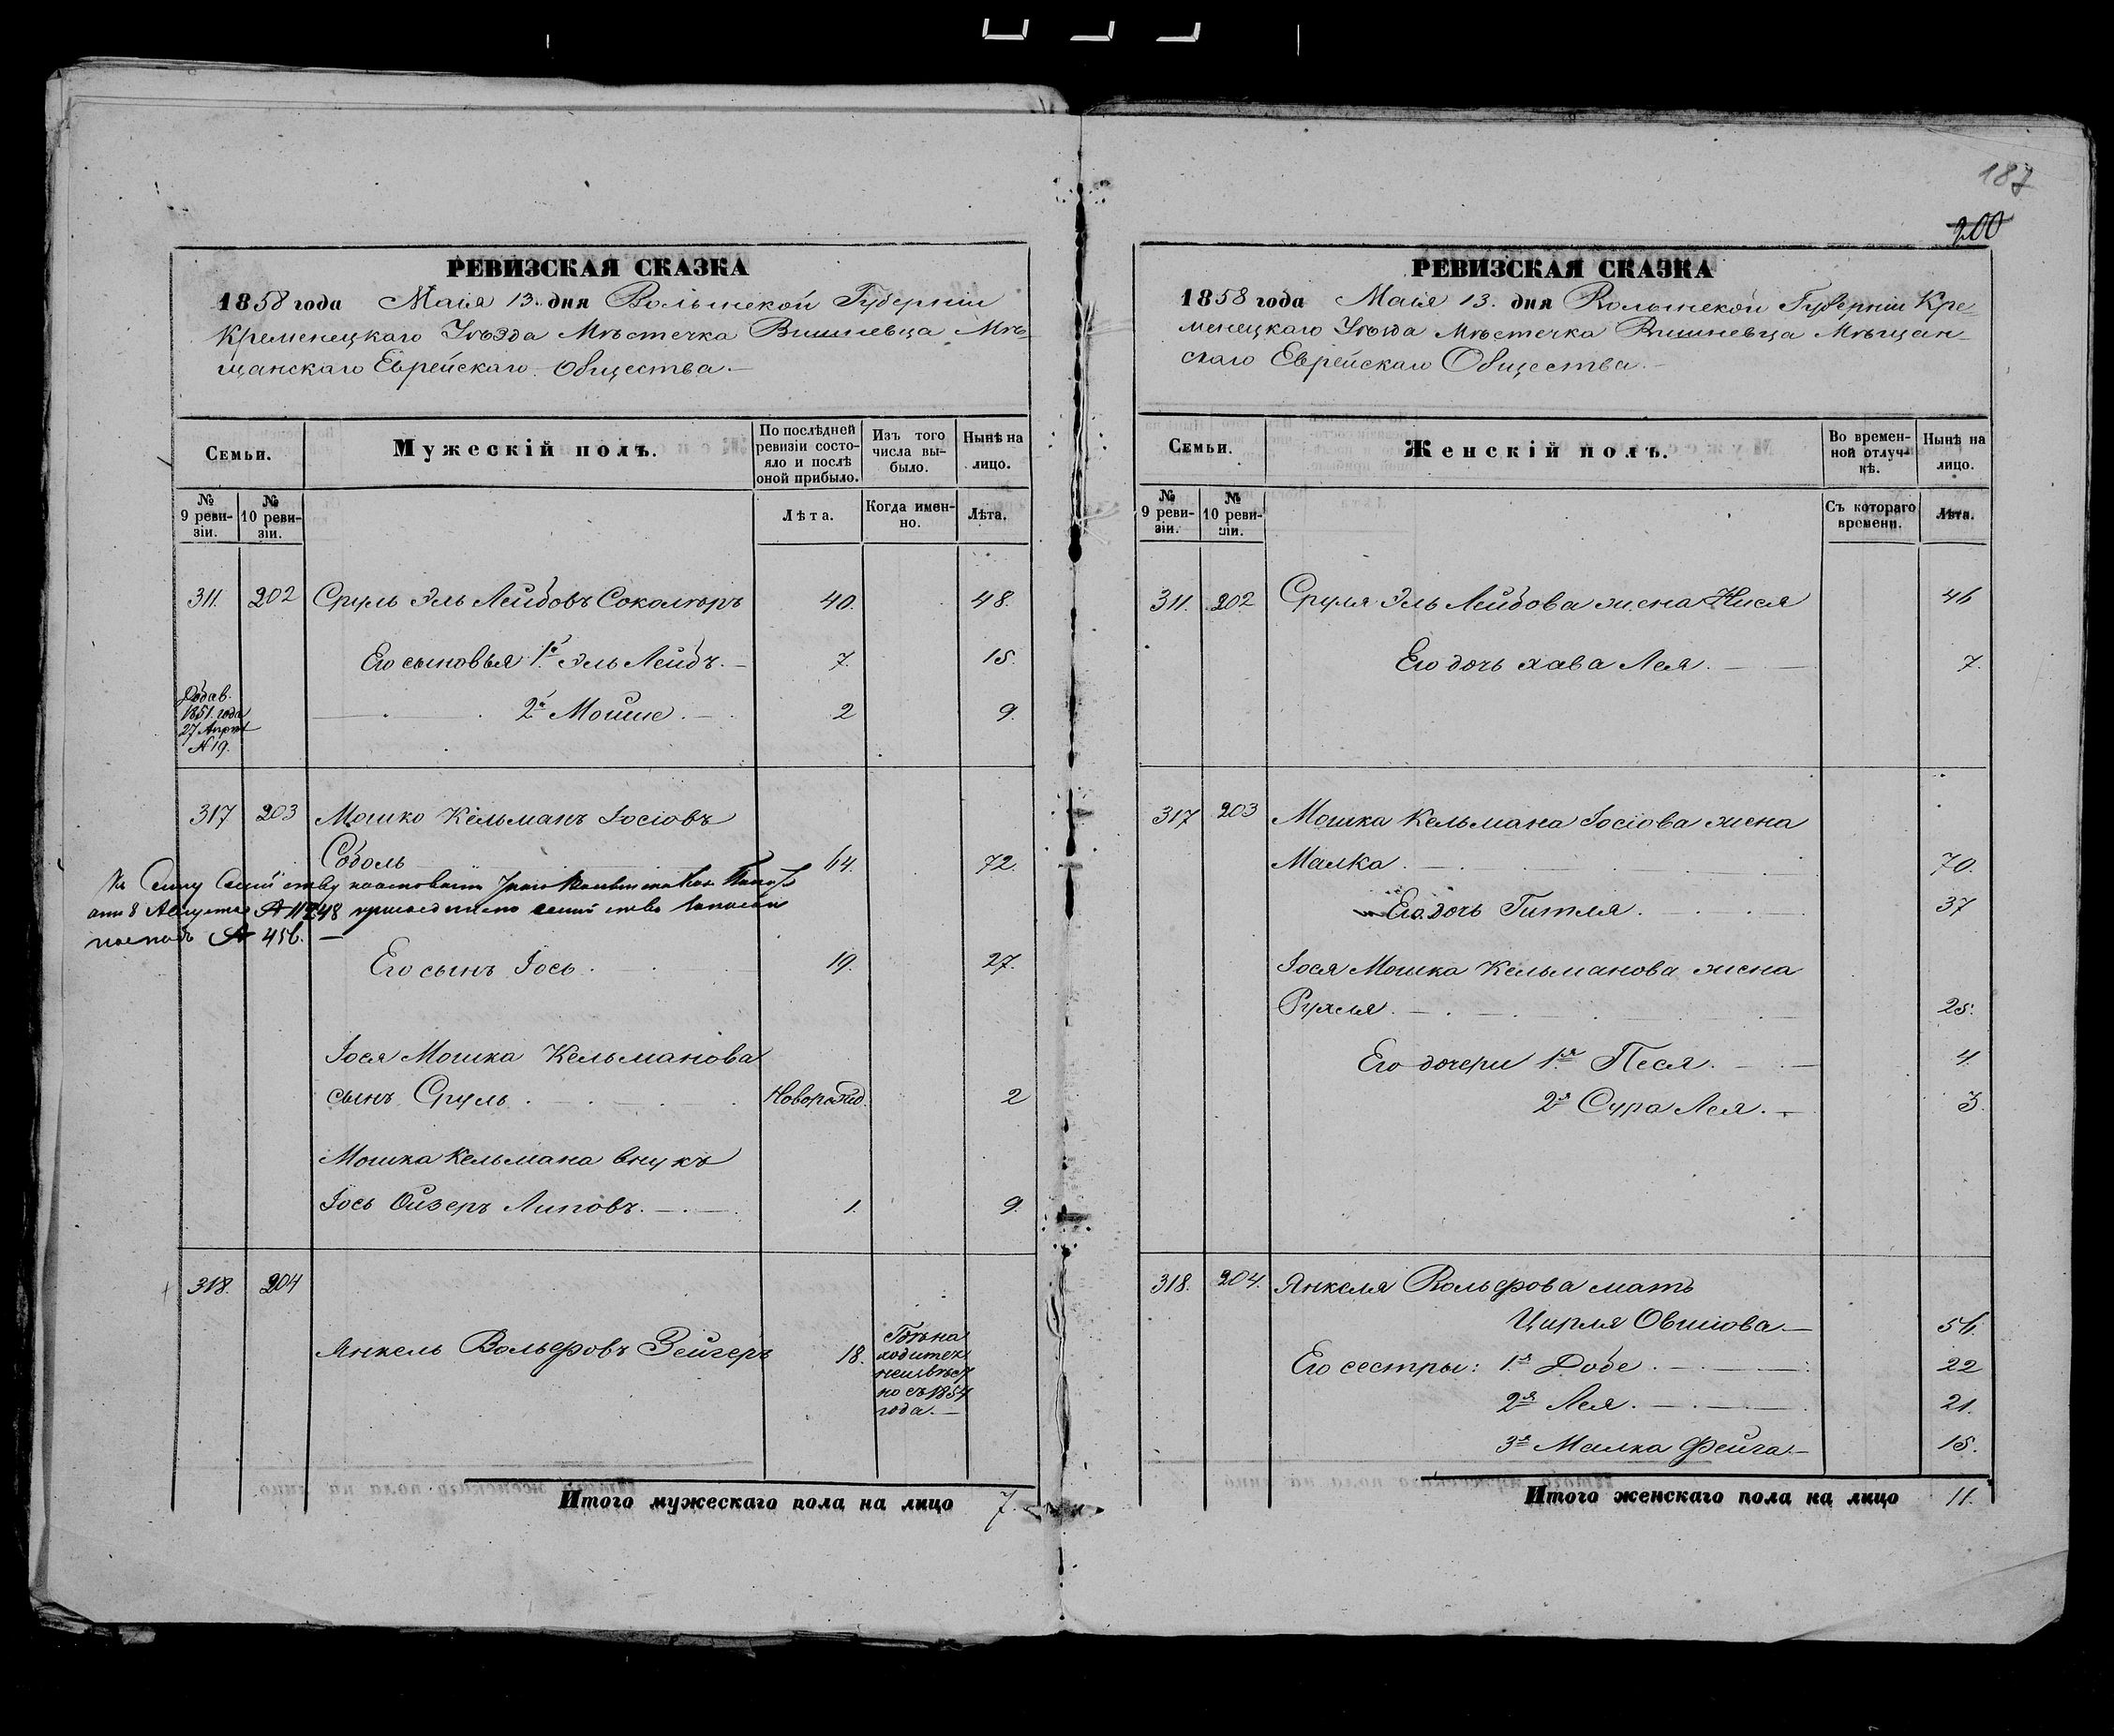 187
200
РЕВИЗСКАЯ СКАЗКА
1858 года Маія 13. дня Волынской Губерніи
Кременецкаго Уѣзда Мѣстечка Вишневца Мѣ-
щанскаго Еврейскаго Общества.—
Семьи.
Мужескій полъ.
По послѣдней ревизіи состояло и послѣ оной прибыло.
Изъ того числа выбыло.
Нынѣ на лицо.
№ 9 ревизіи.
№ 10 ревизіи.
Лѣта.
Когда именно.
Лѣта.
311. 202 Сруль Эль Лейбовъ Соколяръ 40. 48.
Его сыновья 1й Эль Лейбъ.— 7. 15.
Добав.
1851. года
27 Апрѣл
№ 19.
2й Мошие.— 2 9.
317 203 Мошко Кельманъ Іосіовъ
Соболь 64. 72.
Къ Сему Семейству
8 Августа № 11248 присоединено семейство
подъ № 456.—
Его сынъ Іось. 19. 27.
Іося Мошка Кельманова
сынъ Сруль. Новорожд. 2
Мошка Кельмана внукъ
Іось Ойзеръ Липовъ.—.— 1. 9.
318. 204
Янкель Вольфовъ Зейгеръ 18.
года.—
Итого мужескаго пола на лицо 7.
РЕВИЗСКАЯ СКАЗКА
1858 года Маія 13. дня Волынской Губерніи Кре-
менецкаго Уѣзда Мѣстечка Вишневца Мѣщан-
скаго Еврейскаго Общества.—
Семьи.
Женскій полъ.
Во временной отлучкѣ.
Нынѣ на лицо.
№ 9 ревизіи.
№ 10 ревизіи.
Съ котораго времени.
Лѣта.
311. 202 Сруля Эль Лейбова жена 46
Его дочь Хава Лея.— 7.
317 203 Мошка Кельмана Іосіова жена
Малка. 70.
Его дочь Гитля. 37
Іося Мошка Кельманова жена
Рухля. 25.
Его дочери 1я Песя. 4.
2я Сура Лея.— 3.
318. 204. Янкеля Вольфова мать
Цирля Овшіова— 56.
Его сестры: 1я Добе. 22
2я Лея. 21.
3я Малка Фейга.— 15.
Итого женскаго пола на лицо 11.